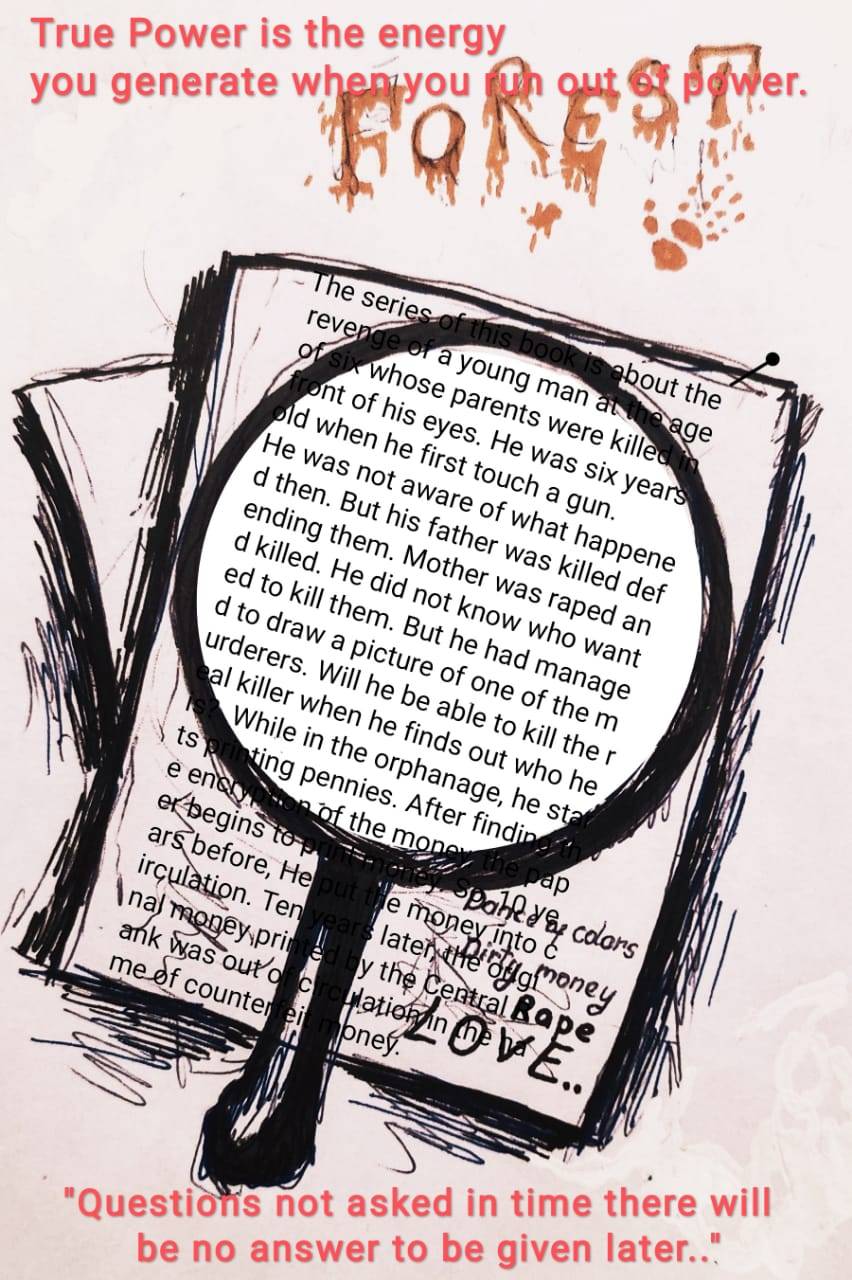 True Power is the energy
you generate when you run out of power.
FOREST
The series of this book is about the
revenge of a young man at the age
of six whose parents were killed in
front of his eyes. He was six years
old when he first touch a gun.
He was not aware of what happene
d then. But his father was killed def
ending them. Mother was raped an
d killed. He did not know who want
ed to kill them. But he had manage
d to draw a picture of one of the m
urderers. Will he be able to kill the r
eal killer when he finds out who he
is? While in the orphanage, he star
ts printing pennies. After finding th
e encryption of the money, the pap
er begins to print money. So 10 ye
ars before, He put the money into c
irculation. Ten years later, the origi
nal money printed by the Central B
ank was out of circulation in the na
me of counterfeit money.
Dance of colors
Dirty money
Rape
LOVE..
"Questions not asked in time there will
be no answer to be given later.."